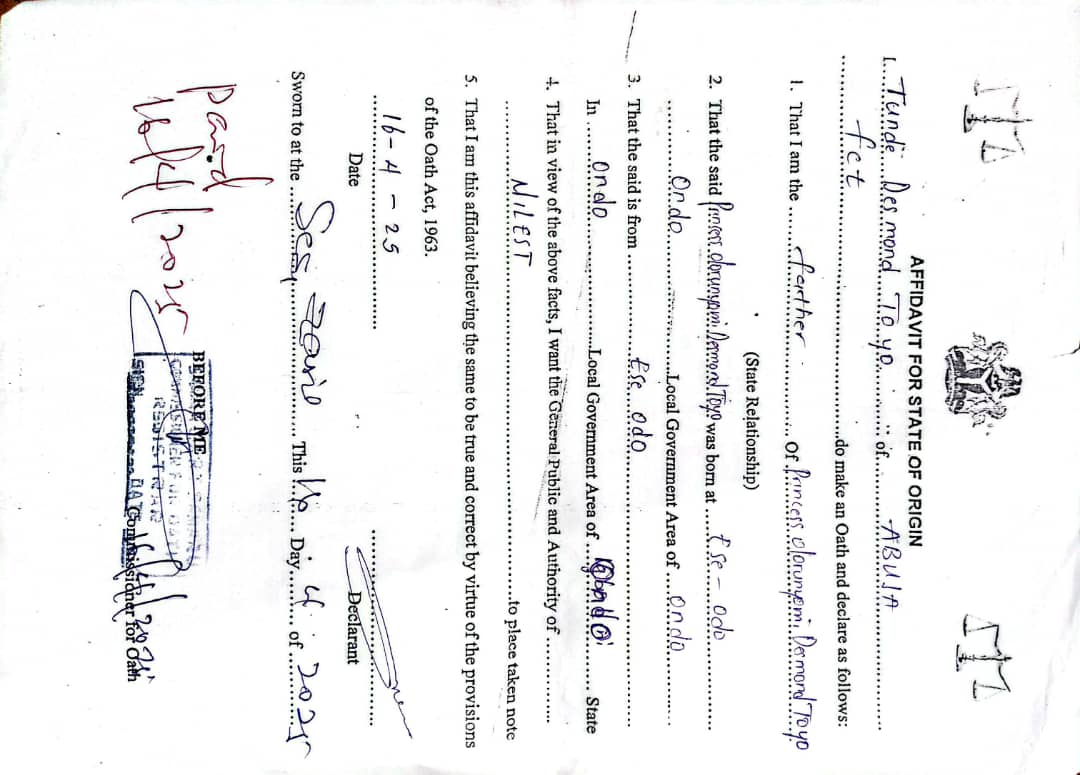 AFFIDAVIT FOR STATE OF ORIGIN
I....Tunde...Desmond Toyo......... of.... ABUJA
fct..............................do make an Oath and declare as follows:
1. That I am the ..... farther ............ Of Princess olorunyomi Desmond Toyo
(State Relationship)
2. That the said Princess olorunyomi Desmond Toyo was born at ..... Ese - odo
Ondo................Local Government Area of ....Ondo
3. That the said is from .................. Ese odo
In ...... Ondo ................Local Government Area of .... Ondo ........ State
4. That in view of the above facts, I want the General Public and Authority of ......
NILEST ................................to place taken note
5. That I am this affidavit believing the same to be true and correct by virtue of the provisions
of the Oath Act, 1963.
16-4-25
Date
Declarant
Sworn to at the ............ This 16 ... Day ... 4 ... of 2025
BEFORE ME
COMMISSIONER FOR OATH
REGISTRAR
SIGN DATE 16/4/2025
Commissioner for Oath
paid
16/4/2025